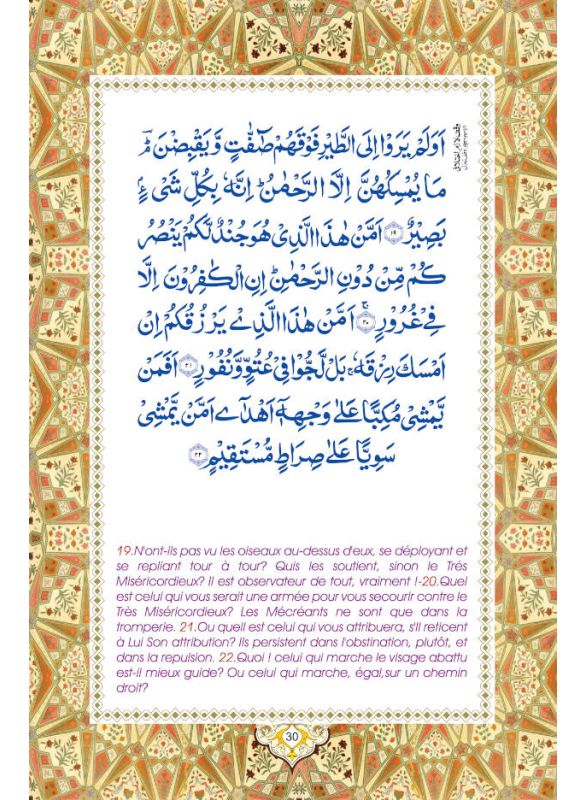 اَوَلَمْ يَرَوْا اِلَى الطَّيْرِ فَوْقَهُمْ صٰٓفّٰتٍ وَّيَقْبِضْنَ ۘؕ
مَا يُمْسِكُهُنَّ اِلَّا الرَّحْمٰنُ ؕ اِنَّهٗ بِكُلِّ شَىْءٍۢ
بَصِيْرٌ ﴿۱۹﴾ اَمَّنْ هٰذَا الَّذِىْ هُوَ جُنْدٌ لَّكُمْ يَنْصُرُ
كُمْ مِّنْ دُوْنِ الرَّحْمٰنِ ؕ اِنِ الْكٰفِرُوْنَ اِلَّا
فِىْ غُرُوْرٍ ۚ﴿۲۰﴾ اَمَّنْ هٰذَا الَّذِىْ يَرْزُقُكُمْ اِنْ
اَمْسَكَ رِزْقَهٗ ۚ بَلْ لَّجُّوْا فِىْ عُتُوٍّ وَّنُفُوْرٍ ﴿۲۱﴾ اَفَمَنْ
يَّمْشِىْ مُكِبًّا عَلٰى وَجْهِهٖۤ اَهْدٰٓى اَمَّنْ يَّمْشِىْ
سَوِيًّا عَلٰى صِرَاطٍ مُّسْتَقِيْمٍ ﴿۲۲﴾
19.N'ont-ils pas vu les oiseaux au-dessus d'eux, se déployant et
se repliant tour à tour? Quis les soutient, sinon le Trés
Miséricordieux? Il est observateur de tout, vraiment !-20.Quel
est celui qui vous serait une armée pour vous secourir contre le
Très Miséricordieux? Les Mécréants ne sont que dans la
tromperie. 21.Ou quell est celui qui vous attribuera, s'il reticent
à Lui Son attribution? Ils persistent dans l'obstination, plutôt, et
dans la repulsion. 22.Quoi ! celui qui marche le visage abattu
est-il mieux guide? Ou celui qui marche, égal,sur un chemin
droit?
30